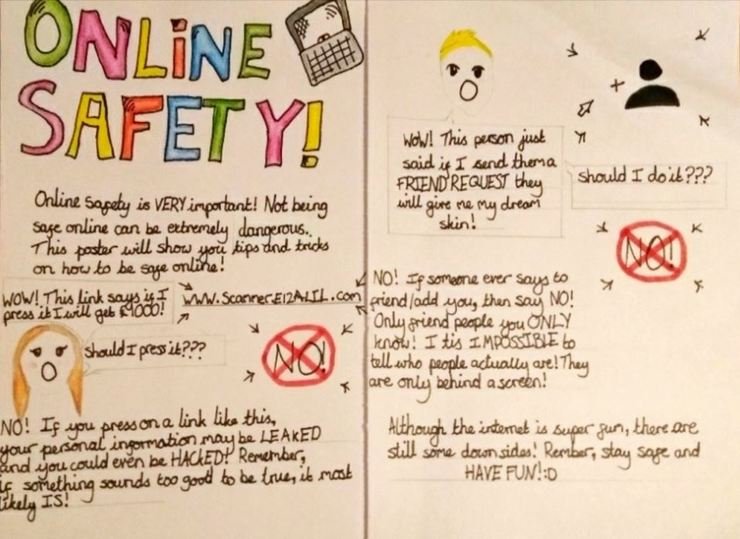 ONLINE
SAFETY!
Online Safety is VERY important! Not being
safe online can be extremely dangerous.
This poster will show you tips and tricks
on how to be safe online!
WOW! This link says if I
press it I will get £1000!
www.ScannerE12ALIL.com
should I press it???
NO!
NO! If you press on a link like this,
your personal information may be LEAKED
and you could even be HACKED! Remember,
if something sounds too good to be true, it most
likely IS!
WoW! This person just
said if I send them a
FRIEND REQUEST they
will give me my dream
skin!
should I do it???
NO!
NO! If someone ever says to
friend/add you, then say NO!
Only friend people you ONLY
know! I tis IMPOSSIBLE to
tell who people actually are! They
are only behind a screen!
Although the internet is super fun, there are
still some down sides! Rember, stay safe and
HAVE FUN!:D